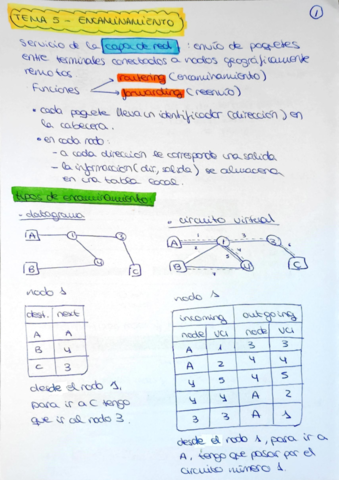 TEMA 5 - ENCAMINAMIENTO
1
Servicio de la capa de red : envío de paquetes
entre terminales conectados a nodos geográficamente
remotos
Funciones
routering (encaminamiento)
forwarding (reenvío)
• cada paquete lleva un identificador (dirección) en
la cabecera.
• en cada nodo:
- a cada dirección se corresponde una salida
- la información (dir, salida) se almacena
en una tabla local.
tipos de encaminamiento:
- datagrama
- circuito virtual
A 1 3
B 4 C
A 1 3
B 4 C
nodo 1
dest. next
A A
B 4
C 3
desde el nodo 1,
para ir a C tengo
que ir al nodo 3.
nodo 1
incoming outgoing
node VCI node VCI
A 1 3 3
A 2 4 4
4 5 4 5
4 4 A 2
3 3 A 1
desde el nodo 1, para ir a
A, tengo que pasar por el
circuito número 1.